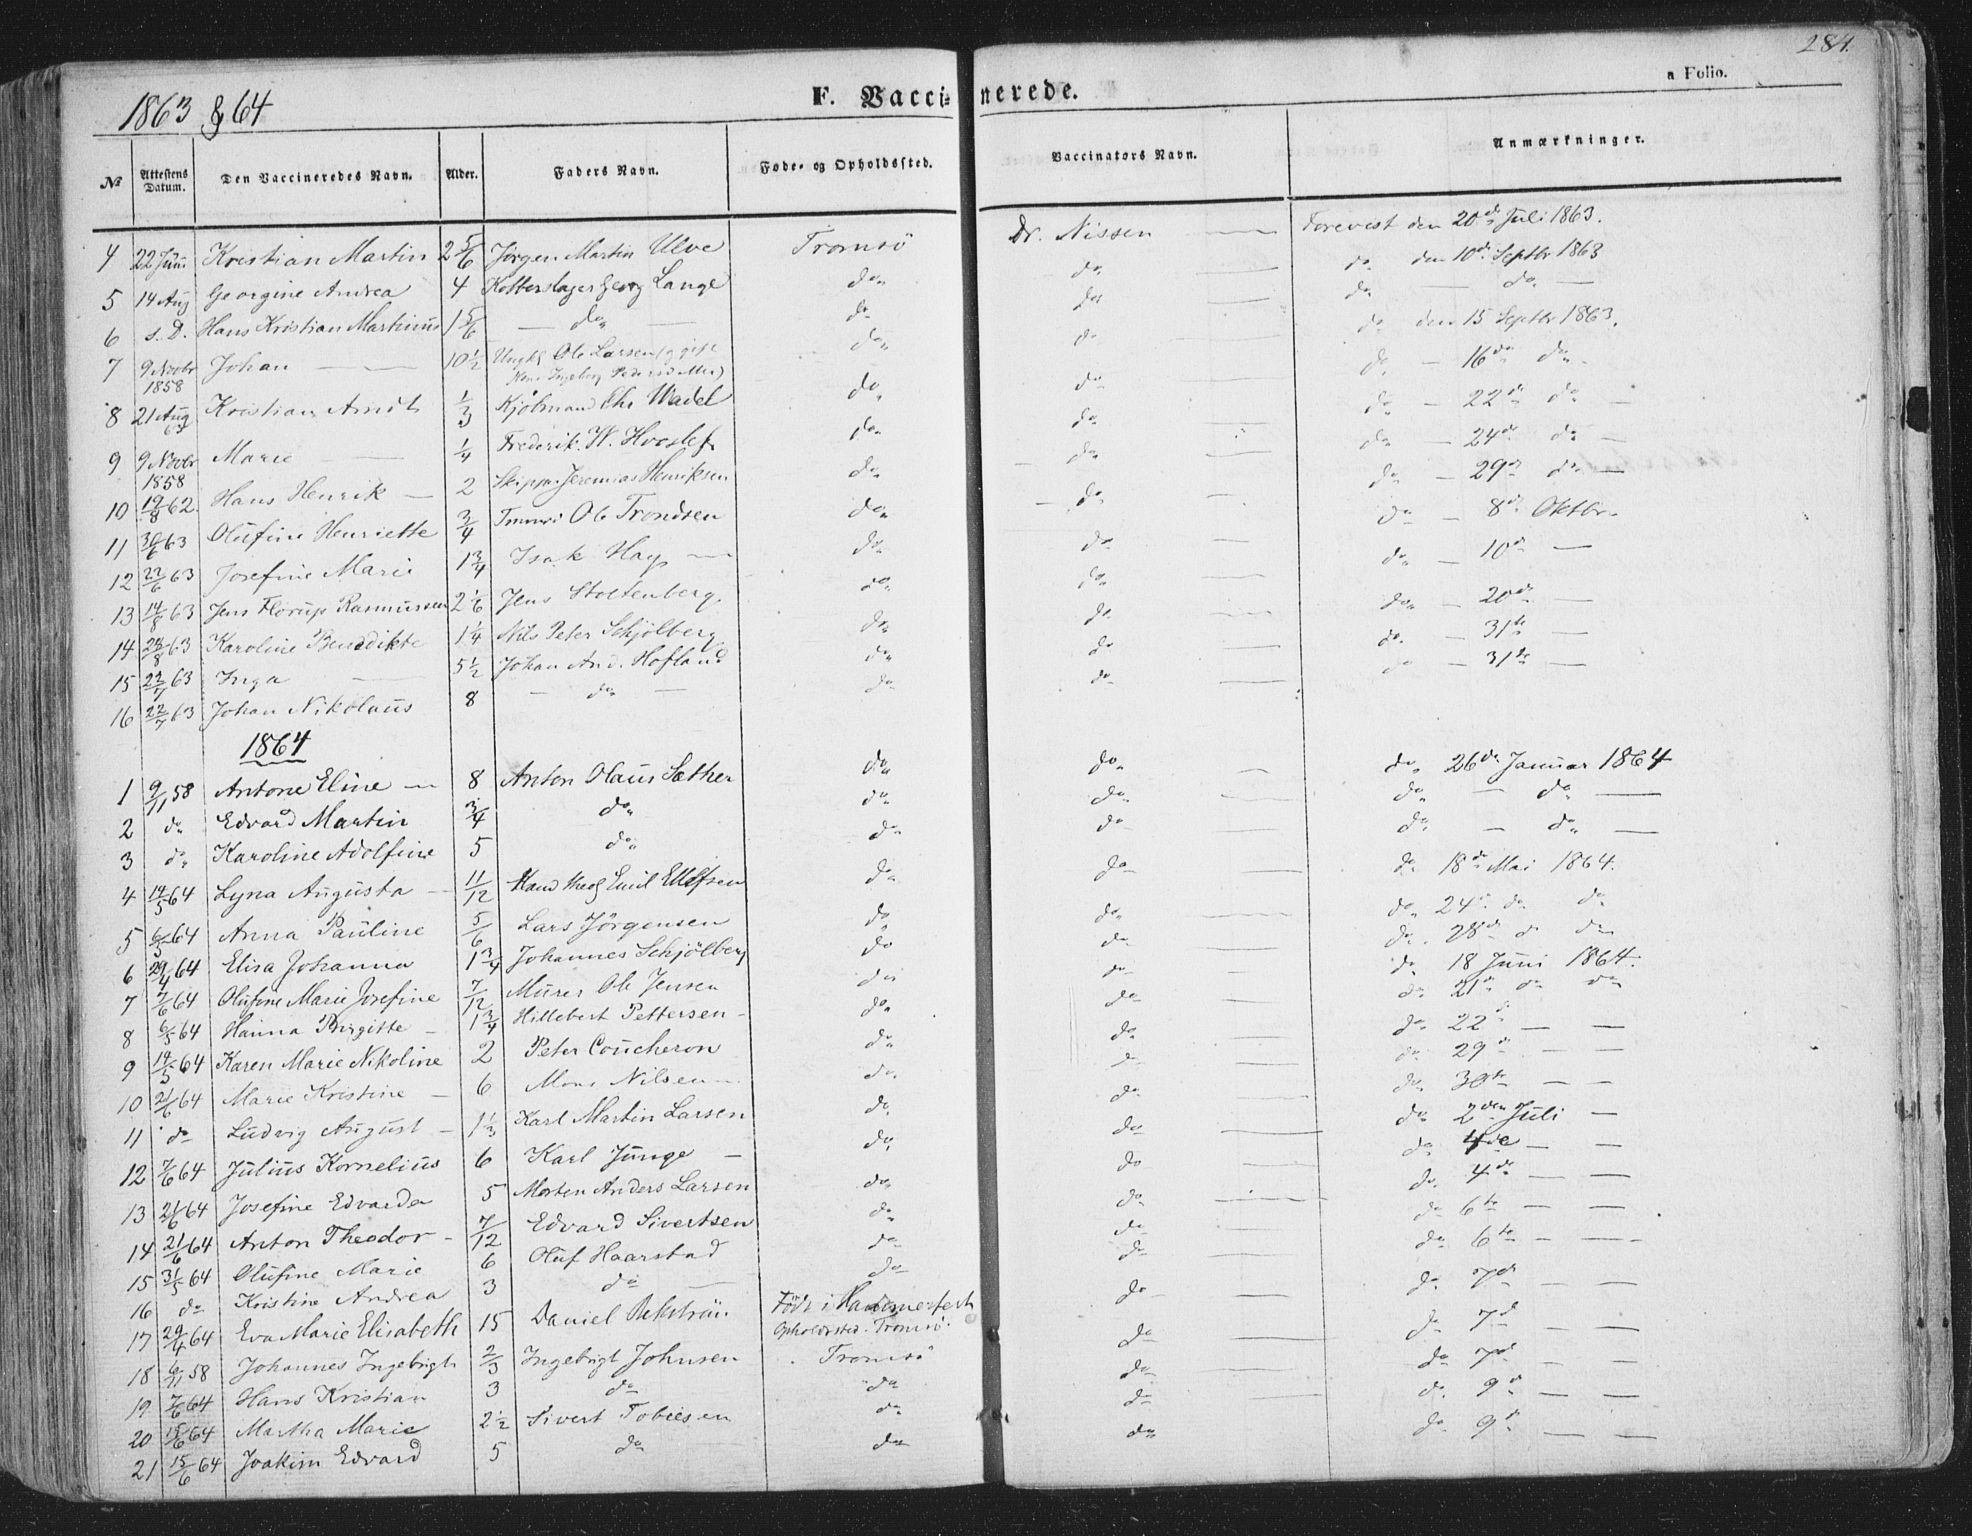 284.
1863 & 64
F. Vaccinerede.
a Folio.
No Attestens Datum. Den Vaccineredes Navn. Alder. Faders Navn. Føde- og Opholdssted. Vaccinators Navn. Anmærkninger.
4 22 Juni Kristian Martin 2 5/6 Jørgen Martin Ulve Tromsö Dr. Nissen — Forevist den 20de Juli 1863.
5 14 Aug Georgine Andrea 4 Georg Lange do do — do den 10de Septbr 1863
6 s. D. Hans Kristian Martinus 1 5/6 — do — do do — do — do —
7 9 Novbr 1858 Johan — 10 1/2 Ole Larsen do do — do den 15 Septbr 1863.
8 21 Aug 63 Kristian Arndt 1/3 Chr Wadel do do — do — 16de do
9 9 Novbr 1858 Marie — 1/4 Frederik W. do do — do — 22de do —
10 19/8 62. Hans Henrik — 2 Skipper Jeremias Henriksen do do — do — 24de do —
11 30/6 63 Olufine Henriette 3/4 Ole Trondsen do do — do — 29de do —
12 22/6 63 Josefine Marie 1 3/4 Isak Hay — do do — do — 8de Oktbr.
13 14/8 63 Jens Florup Rasmussen 2 1/6 Jens Stoltenberg do do — do — 10de —
14 63 Karoline Benedikte 1 1/4 Nils Peter Schjölberg do do — do — 20de —
15 22/7 63 Inga — 5 1/2 Johan And. Hofland do do — do — 31te —
16 22/7 63 Johan Nikolaus 8 — do — do do — do — 31te —
1864
1 9/11 58 Antone Eline — 8 Anton Olaus Sæther do do — do 26de Januar 1864
2 do Edvard Martin 3/4 do do do — do — do —
3 do Karoline Adolfine 5 do do do — do — do —
4 19/5 64 Lyna Augusta — 11/12 Emil Ellefsen do do — do 18de Mai 1864.
5 6/5 64 Anna Pauline 5/6 Lars Jörgensen do do — do 24de do do
6 29/4 64 Elisa Johanna 1 3/4 Johannes Schjölberg do do — do 28de do do
7 7/6 64 Olufine Marie Josefine 7/12 Murer Ole Jensen do do — do 18 Juni 1864.
8 6/5 64 Hanna Birgitte — 1 3/4 Hillebert Pettersen — do do — do 21de do do
9 19/5 64 Karen Marie Nikoline 2 Peter Coucheron do do — do 22de — —
10 21/6 64 Marie Kristine — 6 Mons Nilsen — do do — do 29de — —
11 do Ludvig August — 1 1/3 Karl Martin Larsen do do — do 30te — —
12 7/6 64 Julius Kornelius 6 Karl Junge — do do — do 2den Juli —
13 21/6 64 Josefine Edvarda 5 Morten Anders Larsen do do — do 4de — —
14 21/6 64 Anton Theodor — 7/12 Edvard Sivertsen do do — do 4de — —
15 31/5 64 Olufine Marie 6 Oluf Haarstad do do — do 6te — —
16 do Kristine Andrea 3 do — do do — do 6te — —
17 29/4 64 Eva Marie Elisabeth 15 Daniel Födt i Hammerfest Opholdssted Tromsö. do — do 7de — —
18 6/11 58 Johannes Ingebrigt 2/3 Ingebrigt Johnsen Tromsö do — do 7de — —
19 7/6 64 Hans Kristian 3 do do do — do 7de — —
20 15/6 64 Martha Marie 2 1/2 Sivert Tobiesen do do — do 9de — —
21 15/6 64 Joakim Edvard 5 do do do — do 9de — —